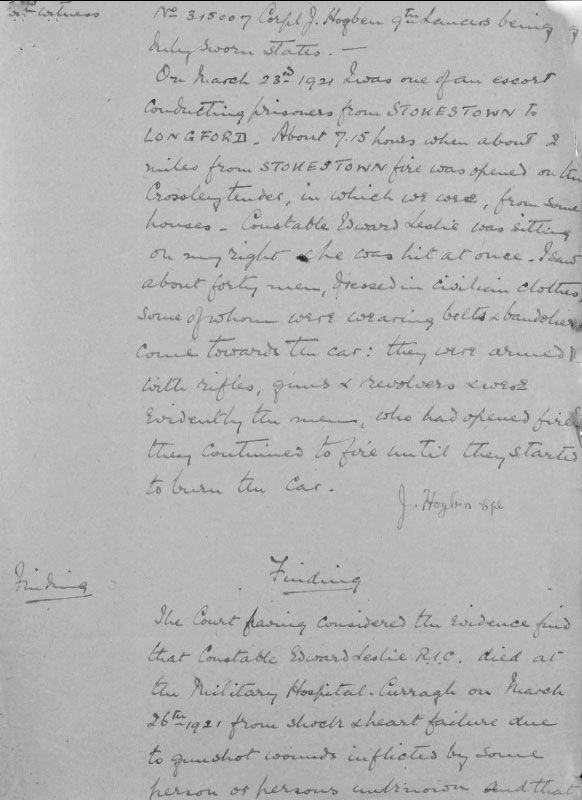 witness
No 315007 Corpl J. Hogben 9th Lancers being
duly sworn states. —
On March 23rd 1921 I was one of an escort
conducting prisoners from STOKESTOWN to
LONGFORD. About 7.15 hours when about 2
miles from STOKESTOWN fire was opened on the
Crossley tender, in which we were, from some
houses. Constable Edward Leslie was sitting
on my right & he was hit at once. I saw
about forty men, dressed in civilian clothes,
some of whom were wearing belts & bandoliers
come towards the car: they were armed
with rifles, guns & revolvers & were
evidently the men, who had opened fire
they continued to fire until they started
to burn the car.
J. Hogben Cpl
Finding
Finding
The Court having considered the evidence find
that Constable Edward Leslie R.I.C. died at
the Military Hospital. Curragh on March
26th 1921 from shock & heart failure due
to gunshot wounds inflicted by some
person or persons unknown and that